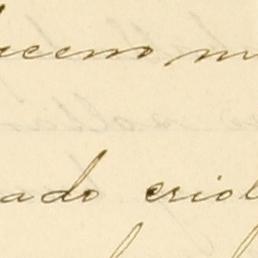 uceno m
ado criol